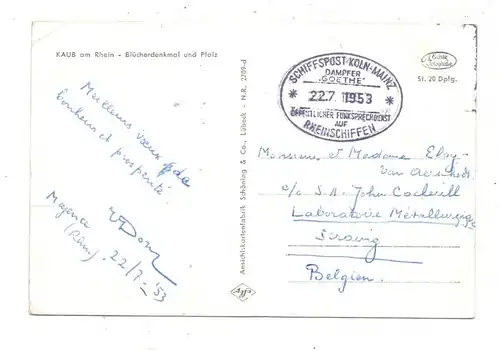 KAUB am Rhein - Blücherdenkmal und Pfalz
Meilleurs vœux de
bonheur et prospérité.
Mayence
(Rhin). 22/7-'53
Ansichtskartenfabrik Schöning & Co., Lübeck - N.R. 2709-d
Agfa
Echte
St. 20 Dpfg.
SCHIFFSPOST·KÖLN-MAINZ
DAMPFER
„GOETHE"
* 22.7. 1953 *
ÖFFENTLICHER FUNKSPRECHDIENST
AUF
RHEINSCHIFFEN
Monsieur et Madame Eloy-
van
c/o S.A. John Cockerill
Laboratoire Métallurgique
Seraing
Belgien.